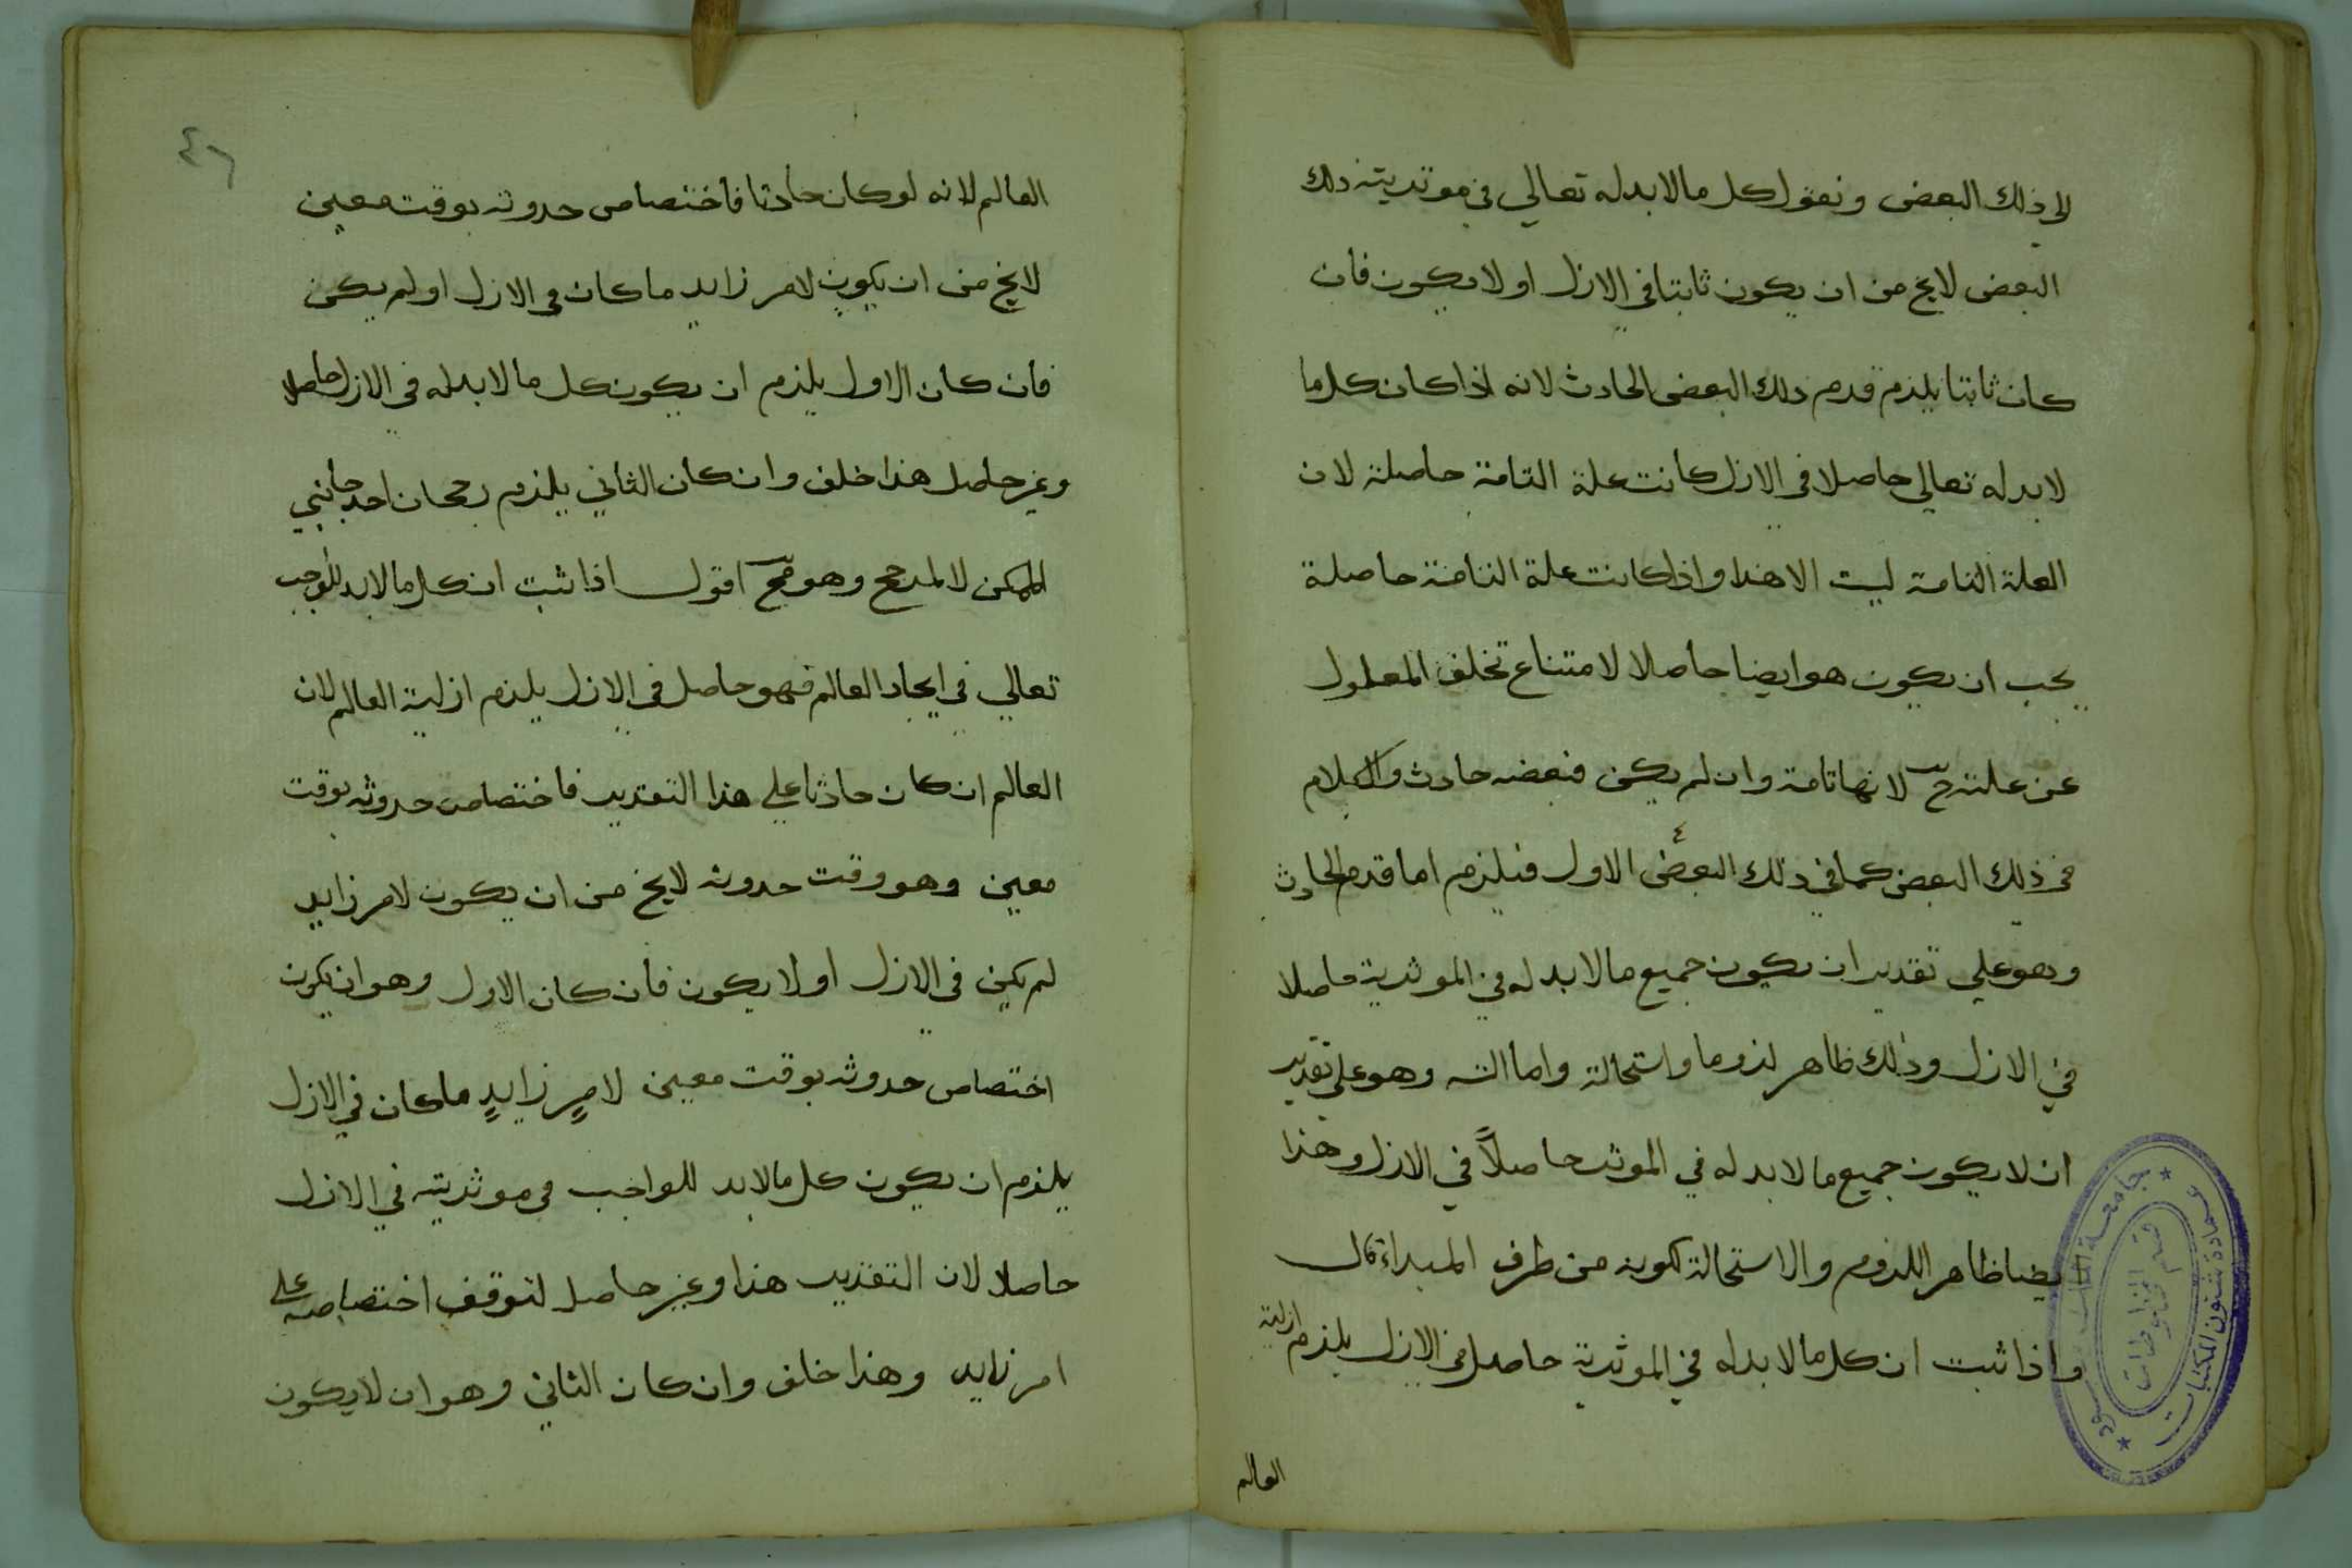 الى ذلك البعض ونقول كل ما لا بد له تعالي في موثريته ذلك
البعض لا يخ من ان يكون ثابتا في الازل او لا يكون فان
كان ثابتا يلزم قدم ذلك البعض الحادث لانه اذا كان كل ما
لا بد له تعالي حاصلا في الازل كانت علة التامة حاصلة لان
العلة التامة ليست الا هذا واذا كانت علة التامة حاصلة
يجب ان يكون هو ايضا حاصلا لامتناع تخلف المعلول
عن علته ح لانها تامة وان لم يكن فبعضه حادث والكلام
في ذلك البعض كما في ذلك البعض الاول فيلزم اما قدم الحادث
وهو علي تقدير ان يكون جميع ما لا بد له في الموثرية حاصلا
في الازل وذلك ظاهر لزوما واستحالة واما التسـ وهو علي تقدير
ان لا يكون جميع ما لا بد له في الموثر حاصلاً في الازل وهذا
ايضا ظاهر اللزوم والاستحالة لكونه من طرف المبداء قال
واذا ثبت ان كل ما لا بد له في الموثرية حاصل في الازل يلزم ازلية
العالم
جامعة الملك سعود
عمادة شئون المكتبات
قسم المخطوطات
٤٦
العالم لانه لو كان حادثا فاختصاص حدوثه بوقت معين
لا يخ من ان يكون لامر زايد ما كان في الازل او لم يكن
فان كان الاول يلزم ان يكون كل ما لا بد له في الازل حاصلا
وغير حاصل هذا خلف وان كان الثاني يلزم رجحان احد جانبي
الممكن لا لمرجح وهو مح اقول اذا ثبت ان كل ما لا بد للواجب
تعالي في ايجاد العالم فهو حاصل في الازل يلزم ازلية العالم لان
العالم ان كان حادثا علي هذا التقدير فاختصاص حدوثه بوقت
معين وهو وقت حدوثه لا يخ من ان يكون لامر زايد
لم يكن في الازل او لا يكون فان كان الاول وهو ان يكون
اختصاص حدوثه بوقت معين لامرٍ زايدٍ ما كان في الازل
يلزم ان يكون كل ما لا بد للواجب في موثريته في الازل
حاصلا لان التقدير هذا وغير حاصل لتوقف اختصاصه علي
امر زايد وهذا خلف وان كان الثاني وهو ان لا يكون